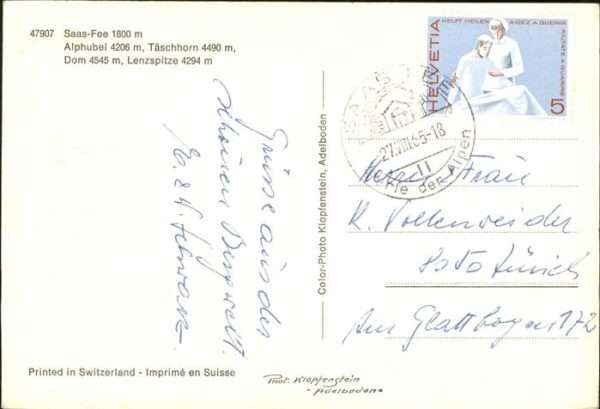 47907 Saas-Fee 1800 m
Alphubel 4206 m, Täschhorn 4490 m,
Dom 4545 m, Lenzspitze 4294 m
Grüsse aus der
schönen Bergwelt.
Color-Photo Klopfenstein, Adelboden
HELFT HEILEN AIDEZ A GUERIR
AIUTATE A GUARIRE
HELVETIA
5
SAAS-FEE
27.VIII.65-18
Perle der Alpen
Herrn Frau
K. Vollenweider
8050 Zürich
Am Glattbogen 172
Printed in Switzerland - Imprimé en Suisse
Phot. Klopfenstein
- Adelboden